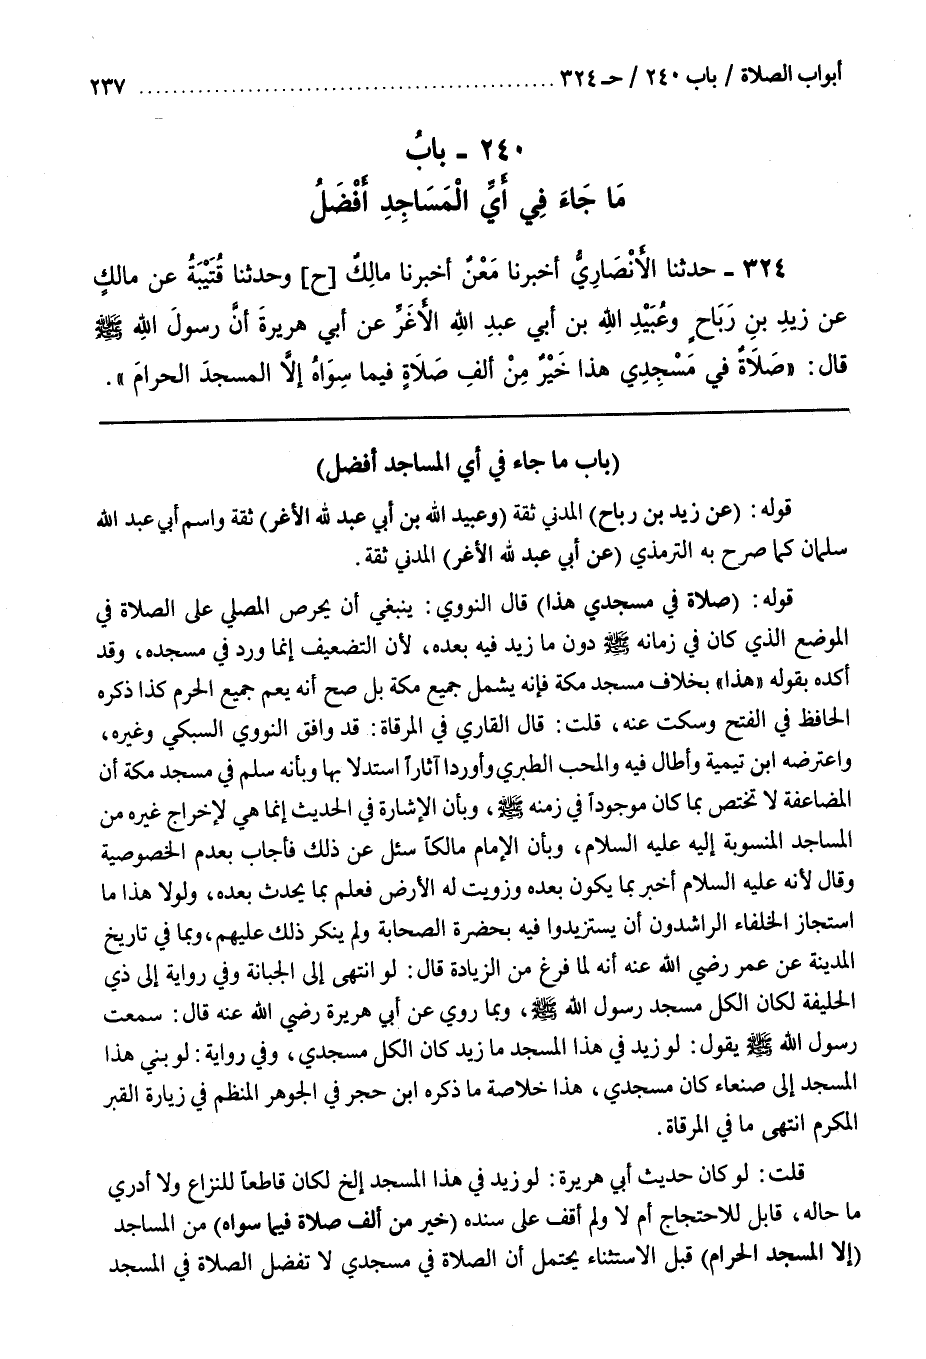 أبواب الصلاة / باب ٢٤٠ / حـ ٣٢٤ ........................................ ٢٣٧
٢٤٠ - بابُ
مَا جَاءَ فِي أَيِّ الْمَسَاجِدِ أَفْضَلُ
٣٢٤ - حدثنا الأَنْصَارِيُّ أخبرنا مَعْنٌ أخبرنا مالِكٌ [ح] وحدثنا قُتَيْبَةُ عن مالكٍ
عن زيدِ بنِ رَبَاحٍ وعُبَيْدِ اللهِ بن أبي عبدِ اللهِ الأَغَرِّ عن أبي هريرةَ أنَّ رسولَ اللهِ ﷺ
قال: «صَلَاةٌ في مَسْجِدِي هذا خَيْرٌ مِنْ ألفِ صَلَاةٍ فيما سِوَاهُ إلَّا المسجدَ الحرامَ».
(باب ما جاء في أي المساجد أفضل)
قوله: (عن زيد بن رباح) المدني ثقة (وعبيد الله بن أبي عبد لله الأغر) ثقة واسم أبي عبد الله
سلمان كما صرح به الترمذي (عن أبي عبد لله الأغر) المدني ثقة.
قوله: (صلاة في مسجدي هذا) قال النووي: ينبغي أن يحرص المصلي على الصلاة في
الموضع الذي كان في زمانه ﷺ دون ما زيد فيه بعده، لأن التضعيف إنما ورد في مسجده، وقد
أكده بقوله «هذا» بخلاف مسجد مكة فإنه يشمل جميع مكة بل صح أنه يعم جميع الحرم كذا ذكره
الحافظ في الفتح وسكت عنه، قلت: قال القاري في المرقاة: قد وافق النووي السبكي وغيره،
واعترضه ابن تيمية وأطال فيه والمحب الطبري وأوردا آثاراً استدلا بها وبأنه سلم في مسجد مكة أن
المضاعفة لا تختص بما كان موجوداً في زمنه ﷺ، وبأن الإشارة في الحديث إنما هي لإخراج غيره من
المساجد المنسوبة إليه عليه السلام، وبأن الإمام مالكاً سئل عن ذلك فأجاب بعدم الخصوصية
وقال لأنه عليه السلام أخبر بما يكون بعده وزويت له الأرض فعلم بما يحدث بعده، ولولا هذا ما
استجاز الخلفاء الراشدون أن يستزيدوا فيه بحضرة الصحابة ولم ينكر ذلك عليهم، وبما في تاريخ
المدينة عن عمر رضي الله عنه أنه لما فرغ من الزيادة قال: لو انتهى إلى الجبانة وفي رواية إلى ذي
الحليفة لكان الكل مسجد رسول الله ﷺ، وبما روي عن أبي هريرة رضي الله عنه قال: سمعت
رسول الله ﷺ يقول: لو زيد في هذا المسجد ما زيد كان الكل مسجدي، وفي رواية: لو بني هذا
المسجد إلى صنعاء كان مسجدي، هذا خلاصة ما ذكره ابن حجر في الجوهر المنظم في زيارة القبر
المكرم انتهى ما في المرقاة.
قلت: لو كان حديث أبي هريرة: لو زيد في هذا المسجد إلخ لكان قاطعاً للنزاع ولا أدري
ما حاله، قابل للاحتجاج أم لا ولم أقف على سنده (خير من ألف صلاة فيما سواه) من المساجد
(إلا المسجد الحرام) قبل الاستثناء يحتمل أن الصلاة في مسجدي لا تفضل الصلاة في المسجد